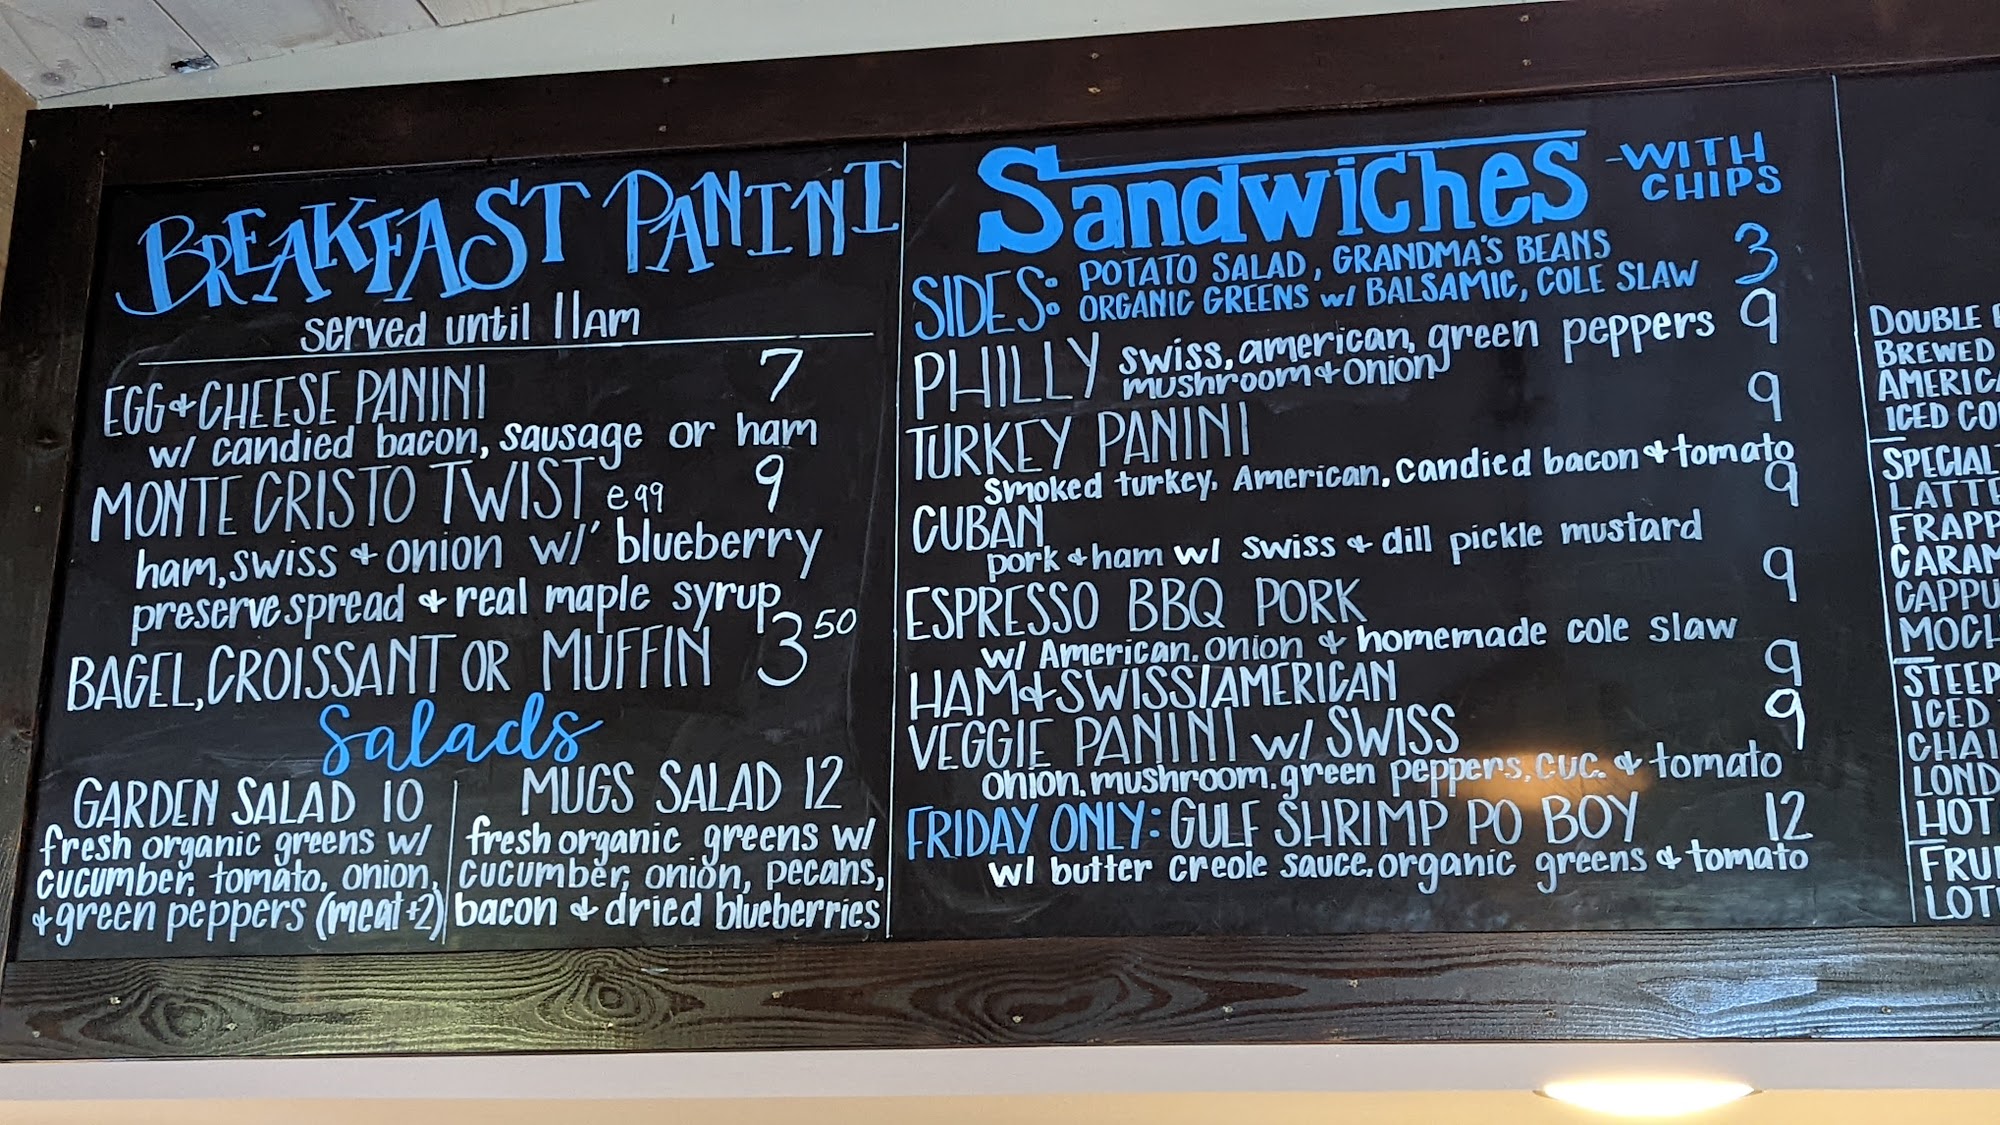 BREAKFAST PANINI
served until 11am
EGG & CHEESE PANINI 7
w/ candied bacon, sausage or ham
MONTE CRISTO TWIST egg 9
ham, swiss & onion w/ blueberry
preserve spread & real maple syrup
BAGEL, CROISSANT OR MUFFIN 3 50
Salads
GARDEN SALAD 10
fresh organic greens w/
cucumber, tomato, onion,
& green peppers (meat +2)
MUGS SALAD 12
fresh organic greens w/
cucumber, onion, pecans,
bacon & dried blueberries
Sandwiches -WITH
CHIPS
SIDES: POTATO SALAD, GRANDMA'S BEANS 3
ORGANIC GREENS w/ BALSAMIC, COLE SLAW
PHILLY swiss, american, green peppers 9
mushroom & onion
TURKEY PANINI 9
Smoked turkey, American, candied bacon & tomato
CUBAN 9
pork & ham w/ swiss & dill pickle mustard
ESPRESSO BBQ PORK 9
w/ American, onion & homemade cole slaw
HAM & SWISS/AMERICAN 9
VEGGIE PANINI w/ SWISS 9
onion, mushroom, green peppers, cuc. & tomato
FRIDAY ONLY: GULF SHRIMP PO BOY 12
w/ butter creole sauce, organic greens & tomato
DOUBLE
BREWED
AMERICA
ICED CO
SPECIAL
LATTE
FRAPP
CARAM
CAPPU
MOCH
STEEP
ICED
CHAI
LOND
HOT
FRUI
LOTU